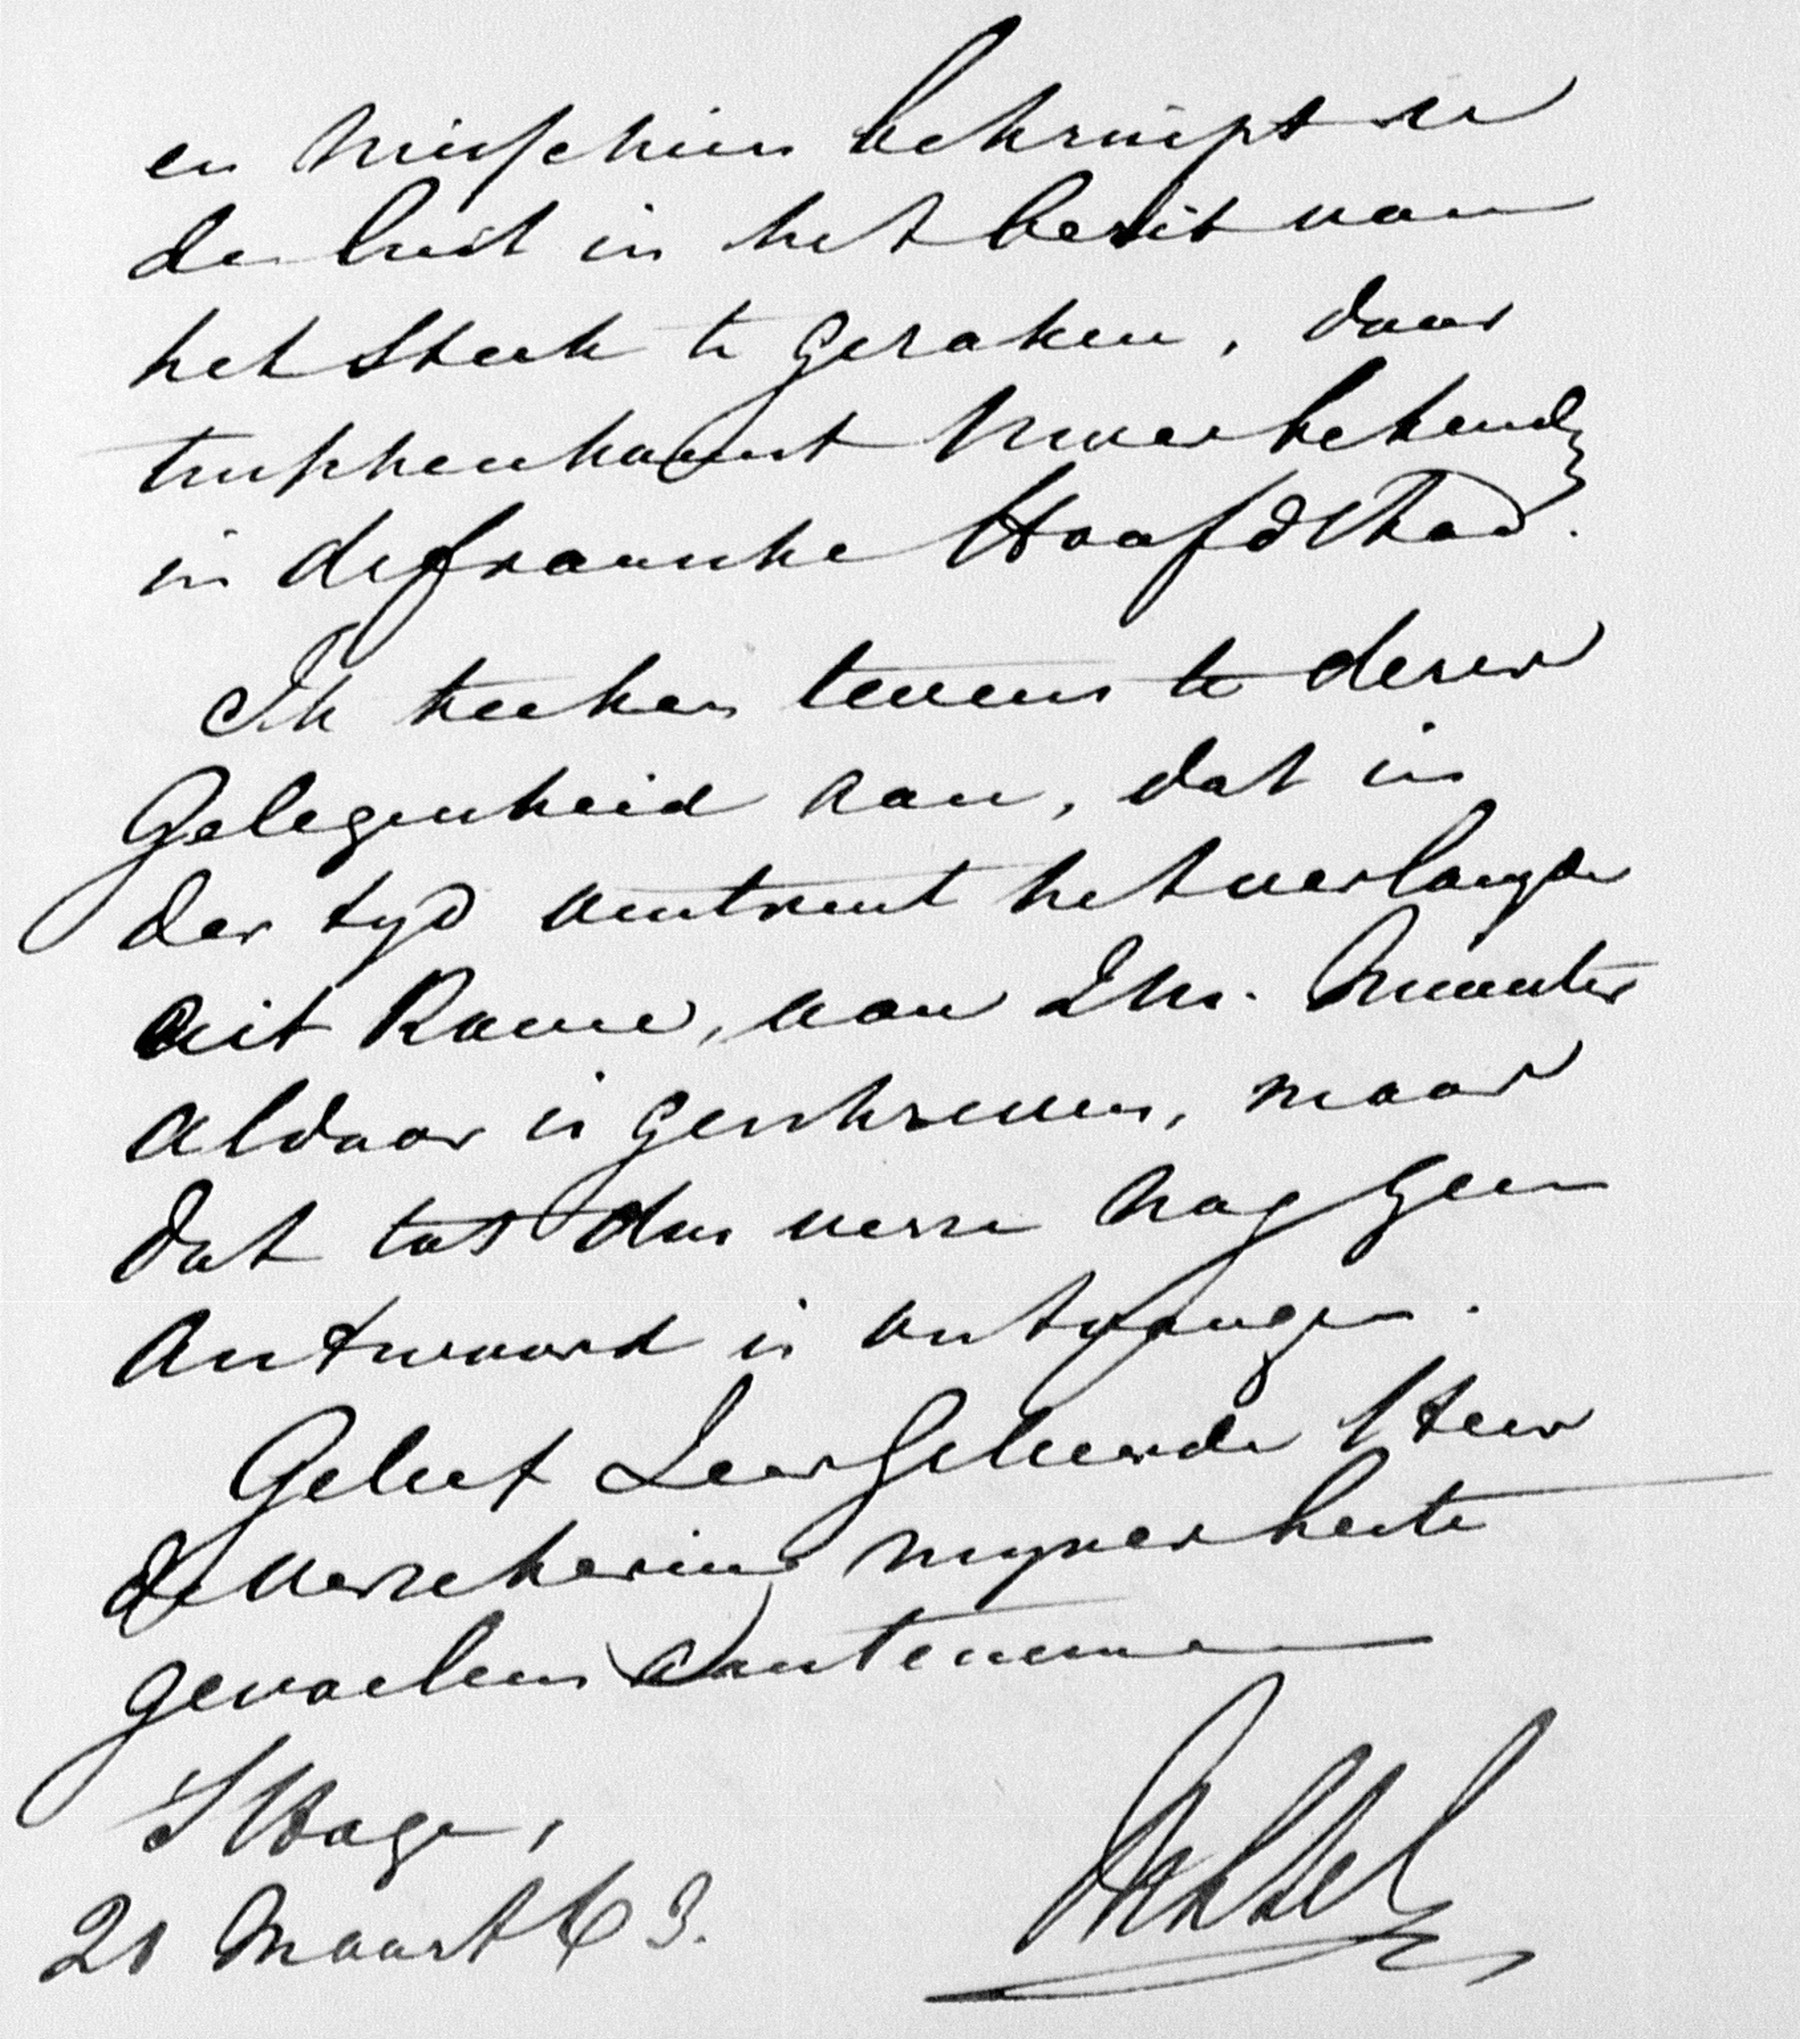 en misschien bekruipt er
de lust in het bezit van
het Stuk te geraken, daar
in de fransche Hoofdstad.
Ik teeken tevens te dezer
Gelegenheid aan, dat in
der tyd omtrent het verlangde
uit Rome, aan Zhr. Minister
aldaar is geschreven, maar
dat tot dus verre nog geen
Antwoord is ontvangen.
Gelieft Zeer Geleerde Heer
de verzekering myner beste
gevoelens aantenemen
S Hage,
20 Maart 63.